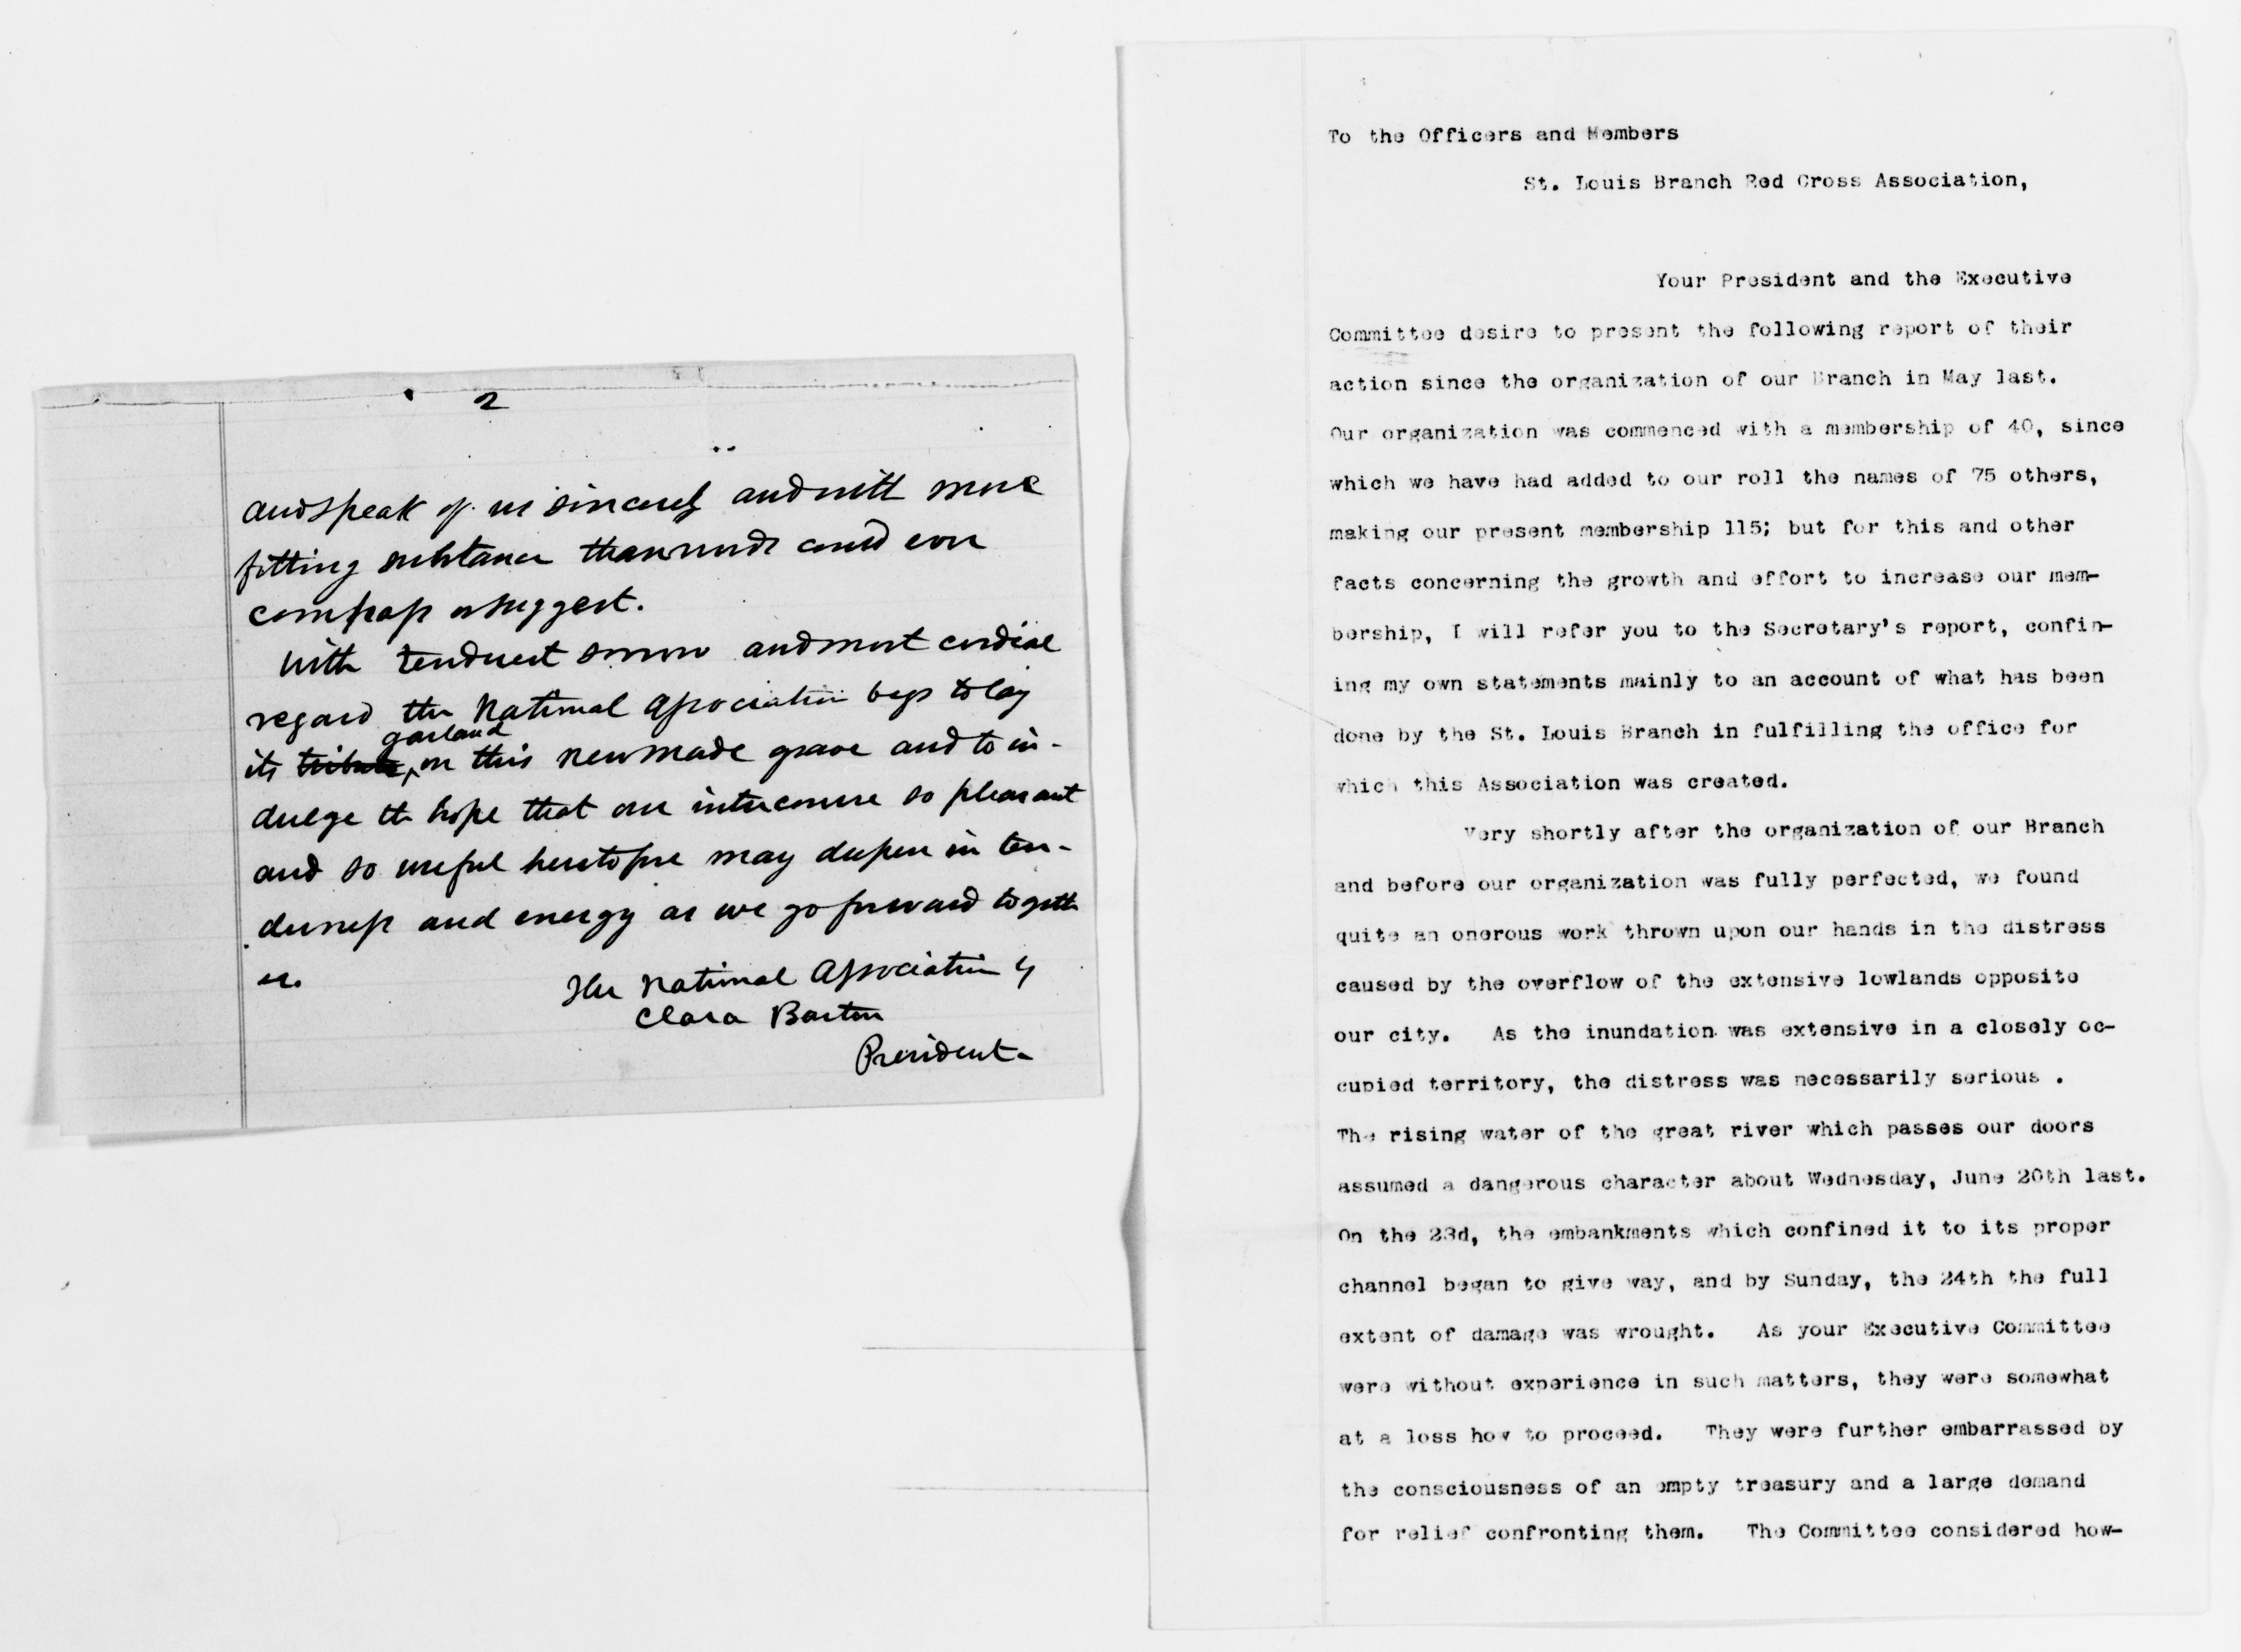 2
and speak of us sincerely and with more
fitting substance than words could ever
compass or suggest.
With tenderest sorrow and most cordial
regard the National Association begs to lay
its tribute garland on this new made grave and to in-
dulge the hope that our intercourse so pleasant
and so useful heretofore may deepen in ten-
derness and energy as we go forward togeth
er.
The National Association by
Clara Barton
President-
To the Officers and Members
St. Louis Branch Red Cross Association,
Your President and the Executive
Committee desire to present the following report of their
action since the organization of our Branch in May last.
Our organization was commenced with a membership of 40, since
which we have had added to our roll the names of 75 others,
making our present membership 115; but for this and other
facts concerning the growth and effort to increase our mem-
bership, I will refer you to the Secretary's report, confin-
ing my own statements mainly to an account of what has been
done by the St. Louis Branch in fulfilling the office for
which this Association was created.
Very shortly after the organization of our Branch
and before our organization was fully perfected, we found
quite an onerous work thrown upon our hands in the distress
caused by the overflow of the extensive lowlands opposite
our city. As the inundation was extensive in a closely oc-
cupied territory, the distress was necessarily serious .
The rising water of the great river which passes our doors
assumed a dangerous character about Wednesday, June 20th last.
On the 23d, the embankments which confined it to its proper
channel began to give way, and by Sunday, the 24th the full
extent of damage was wrought. As your Executive Committee
were without experience in such matters, they were somewhat
at a loss how to proceed. They were further embarrassed by
the consciousness of an empty treasury and a large demand
for relief confronting them. The Committee considered how-